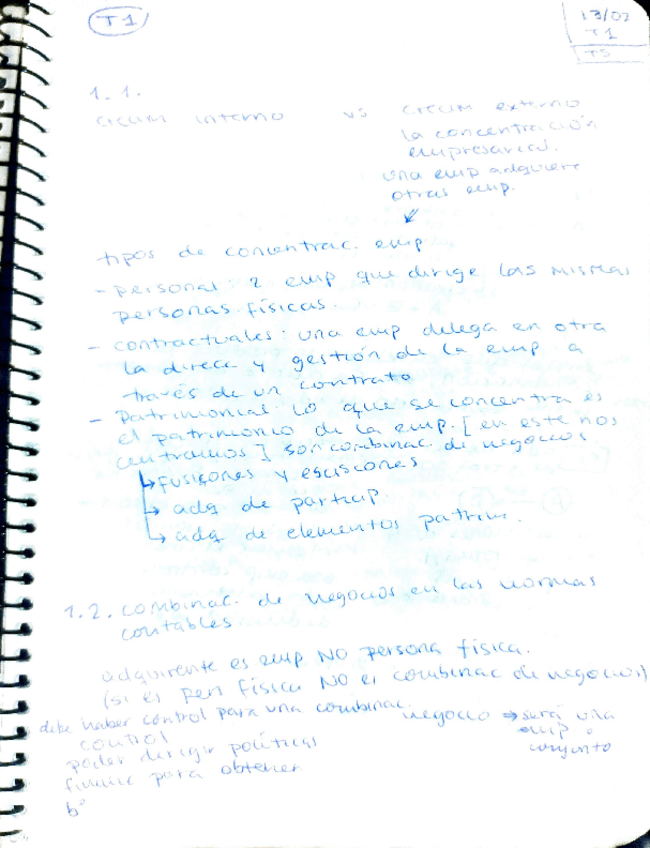 T1
13/02
T1
T5
1.1.
crecim interno vs crecim externo
la concentración
empresarial.
una emp adquiere
otras emp.
tipos de concentrac. emp
- personal: 2 emp que dirige las mismas
personas físicas.
- contractuales: una emp delega en otra
la direcc y gestión de la emp a
través de un contrato
- Patrimonial: lo que se concentra es
el patrimonio de la emp. [en este nos
centramos] son combinac. de negocios
↳ fusiones y escisiones
↳ adq de particip.
↳ adq de elementos patrim.
1.2. combinac. de negocios en las normas
contables
adquirente es emp NO persona física.
(si es pers física NO es combinac de negocios)
debe haber control para una combinac.
negocio → será una
emp o
conjunto
control
poder dirigir políticas
financ para obtener
bº